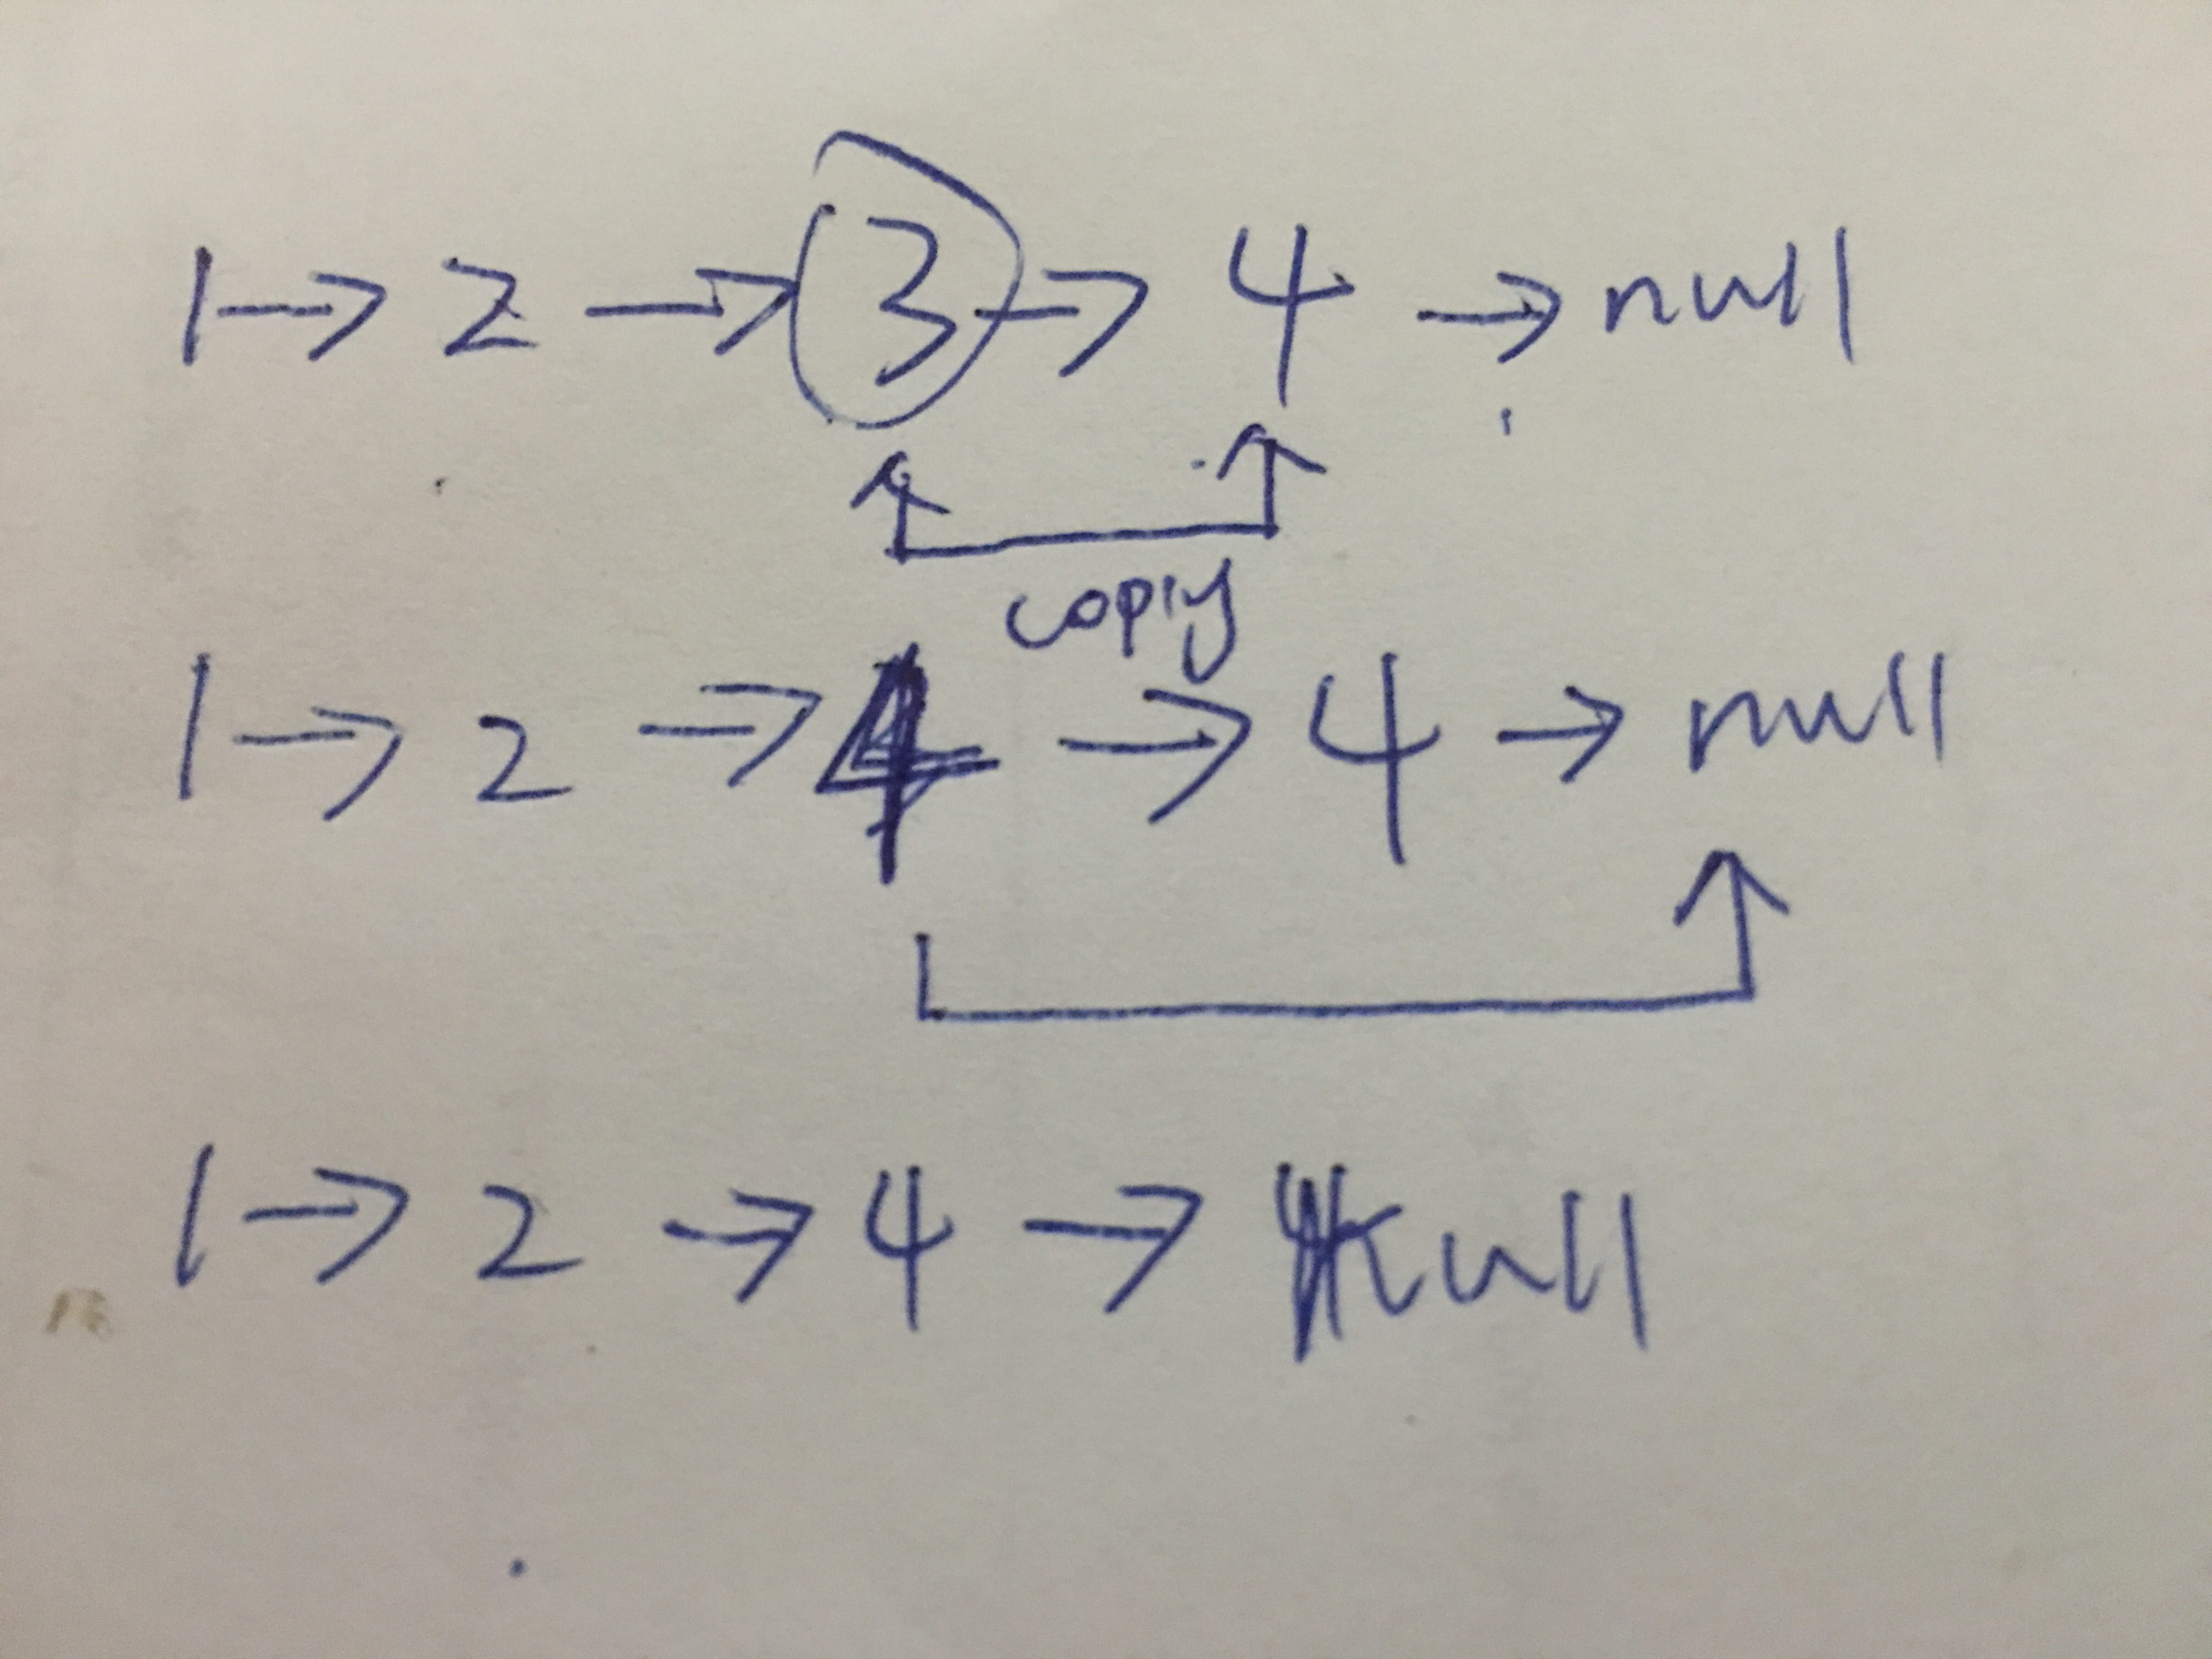 1 → 2 → 3 → 4 → null
copy
1 → 2 → 4 → 4 → null
1 → 2 → 4 → null